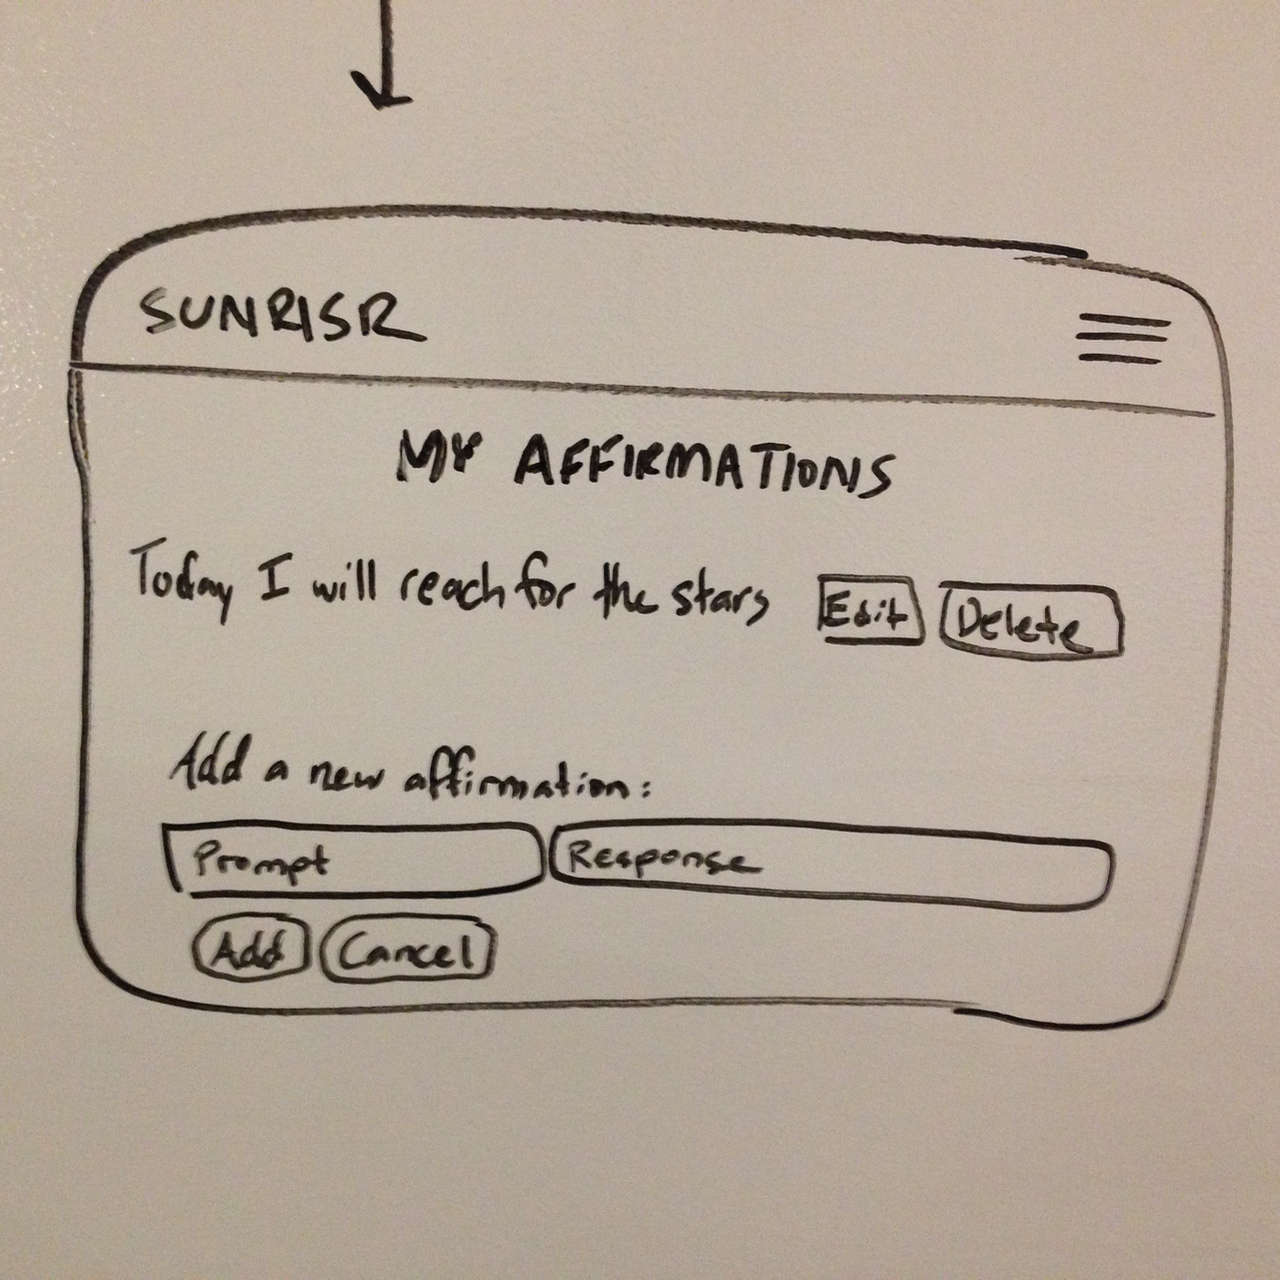 SUNRISR
MY AFFIRMATIONS
Today I will reach for the stars Edit Delete
Add a new affirmation:
Prompt Response
Add Cancel